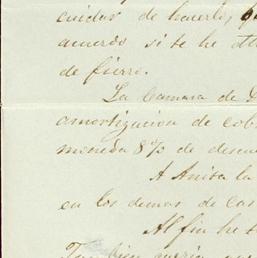 cuidas de hacerlo,
acuerdo si te he
de fierro.
La Camara de
amortizacion de cob
moneda 8% de descu
A Anita la
en los demas de cas
Al fin he
Tambien queria